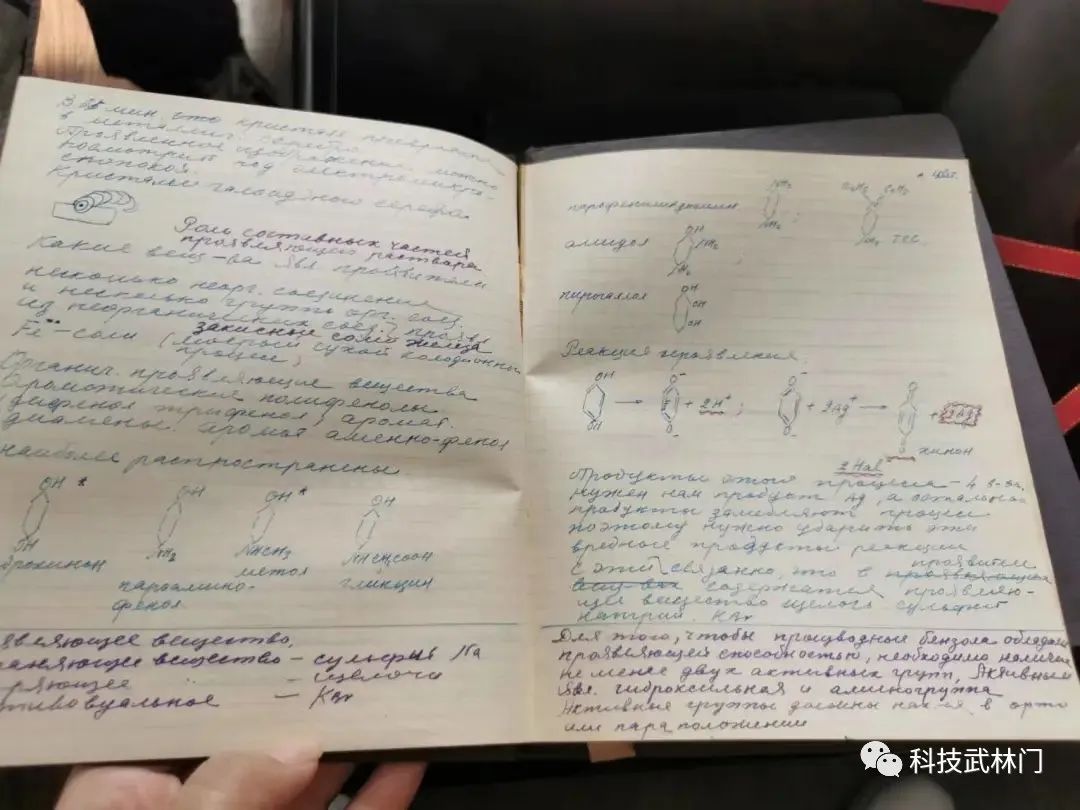 мин. что кристалл
в металлич. серебро
Проявленное изображение можно
посмотреть под электромикро-
скопом.
Кристаллы галоидного серебра.
Роль составных частей
проявляющего раствора
Какие вещ-ва явл проявляющ
несколько неорг. соединений
и несколько групп орг. соед.
из неорганических соед.
закисные соли железа
Fe¨ - соли (мокрый сухой колодионный
процесс)
Органич. проявляющие вещества
ароматические полифенолы
(дифенол, трифенол) аромат.
диамены. аромат аменно-фенол
наиболее распространены
OH *
OH
дрохинон
OH
NH2
парааммино-
фенол
OH *
NHCH3
метол
OH
NHCH2COOH
глицин
являющее вещество,
раняющее вещество - сульфит Na
ряющее - щелочи
тивовуальное - KBr
парафенилендиамин
NH2
NH2
C2H5 C2H5
NH2 ТСС
амидол
OH
NH2
NH2
пирогаллол
OH
OH
OH
Реакция проявления.
OH
OH
→
O⁻
O⁻
+ 2H⁺ ;
O⁻
O⁻
+ 2Ag⁺ →
O
O
+ 2Ag
хинон
2 Hal
Продукты этого процесса - 4 в-ва.
нужен нам продукт Ag, а остальные
продукты замедляют процесс
поэтому нужно убирать эти
вредные продукты реакции
проявителе
С этим связанно, что в проявляющем
содержатся проявляю-
щее вещество щелочь сульфит
натрий. KBr
Для того, чтобы производные бензола обладали
проявляющей способностью, необходимо наличие
не менее двух активных групп, Активным
явл. гидроксильная и аминогруппа
Активные группы должны нах-ся в орто
или пара положении
科技武林门